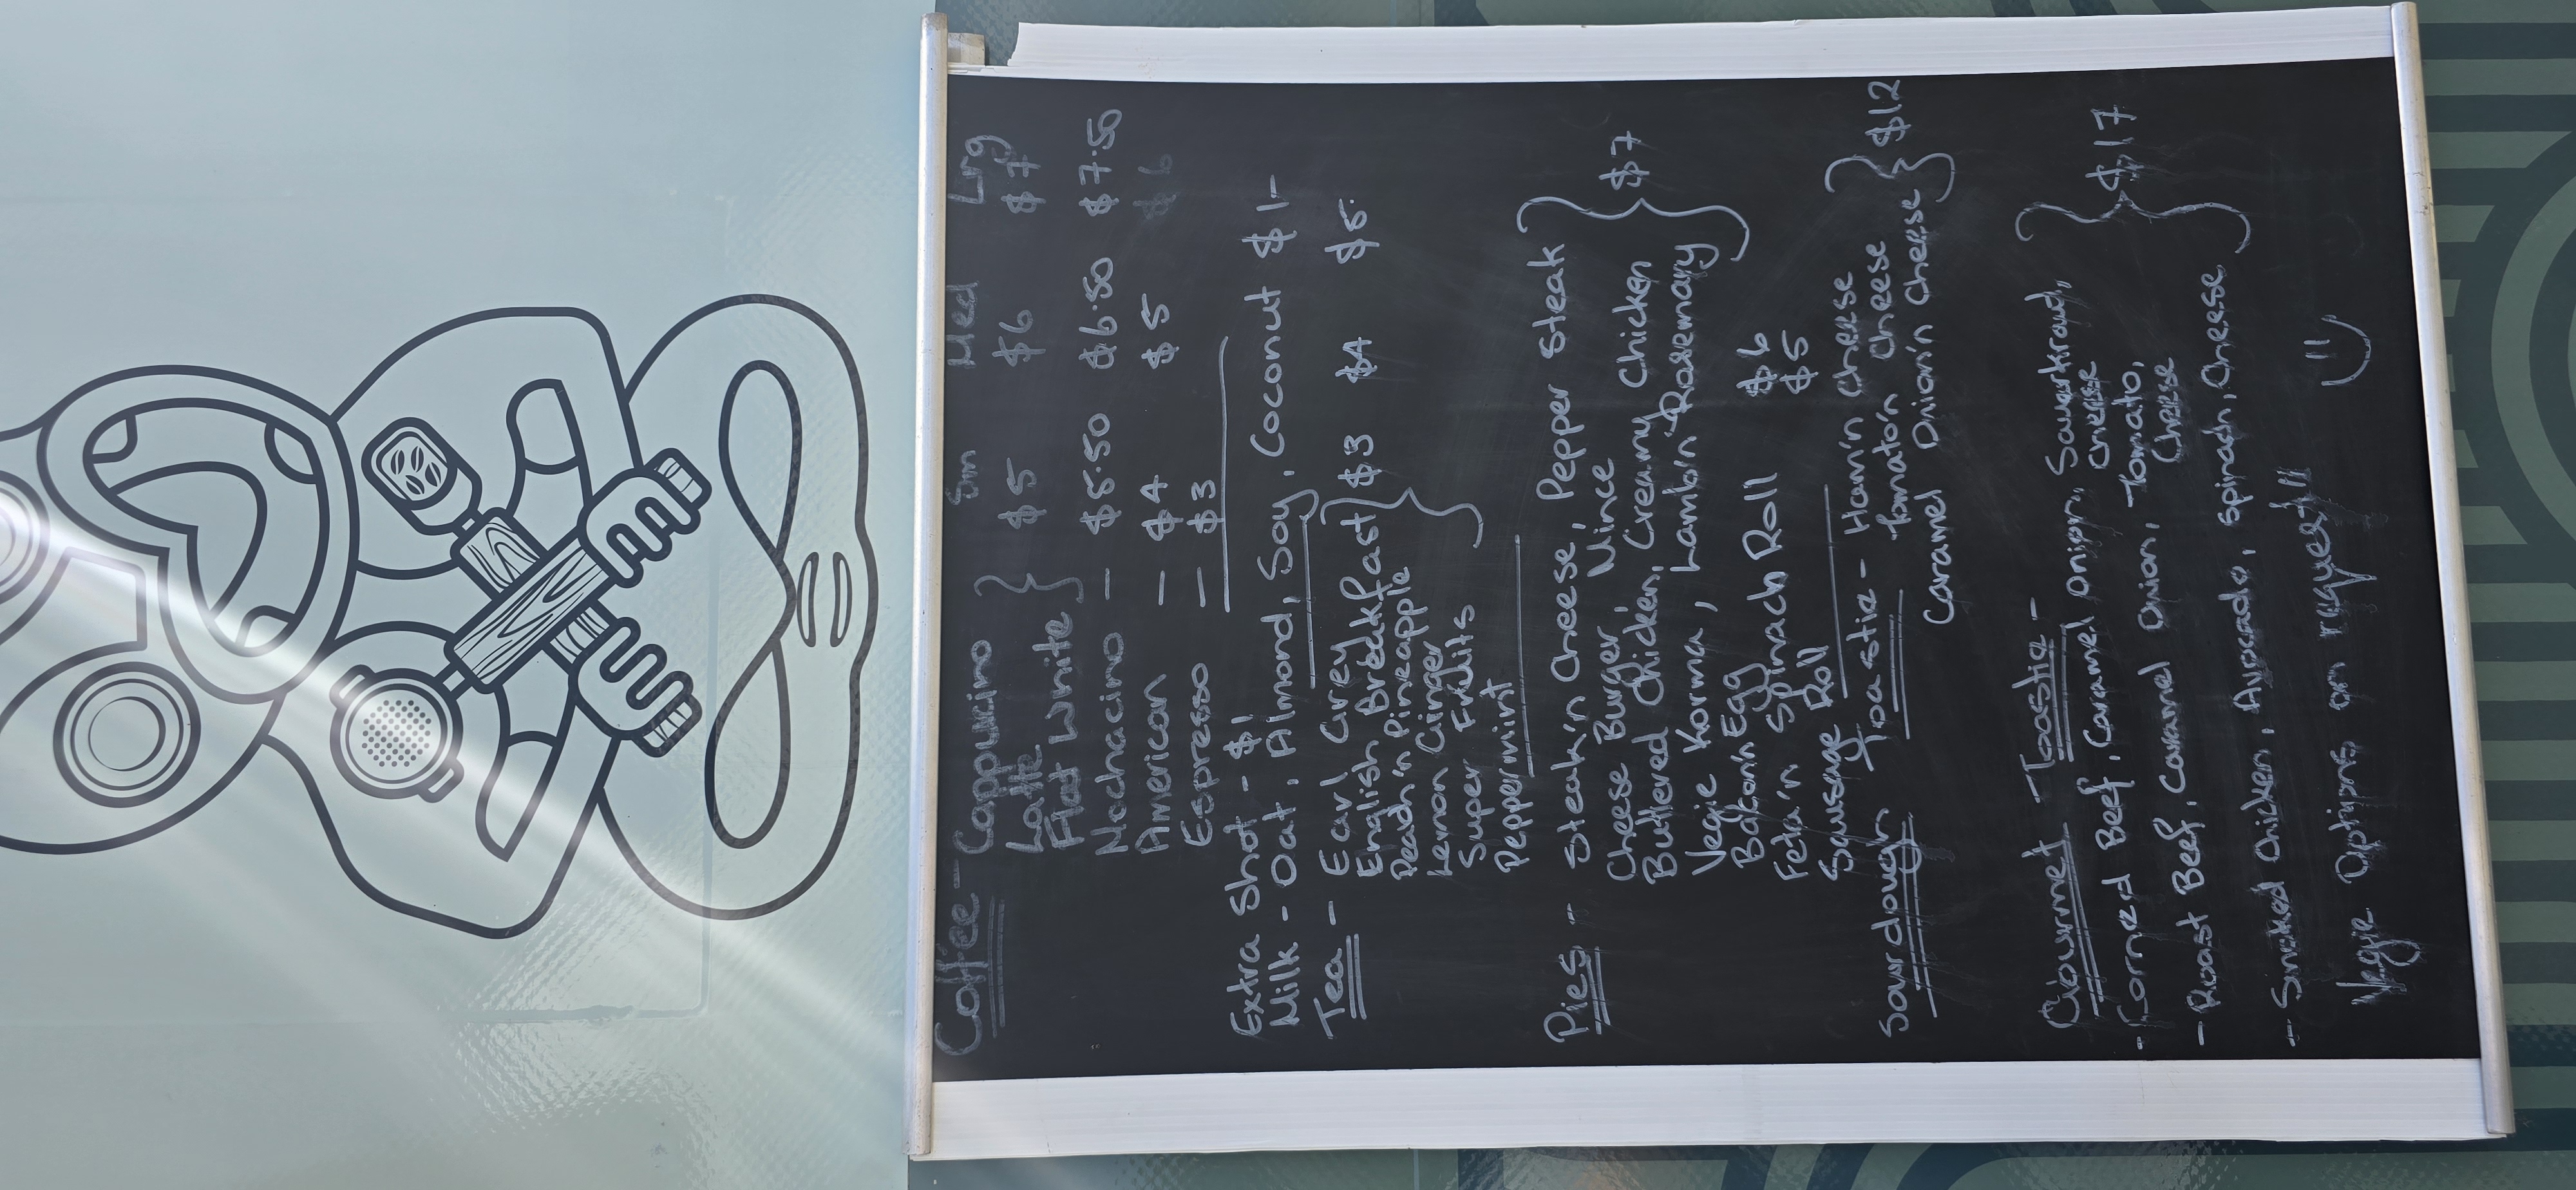 Sm Med Lrg
Coffee - Cappucino
Latte } $5 $6 $7
Flat White
Mochacino - $5.50 $6.50 $7.50
American - $4 $5 $6
Espresso - $3
Extra Shot - $1
Milk - Oat, Almond, Soy, Coconut $1-
Tea - Earl Grey
English Breakfast } $3 $4 $5.
Peach'n Pineapple
Lemon Ginger
Super Fruits
Peppermint
Pies - Steak'n Cheese, Pepper Steak
Cheese Burger, Mince
Buttered Chicken, Creamy Chicken } $7
Vegie Korma, Lamb'n Rosemary
Bacon'n Egg
Feta'n Spinach Roll $6
Sausage Roll $5
Sourdough Toastie - Ham'n Cheese
Tomato'n Cheese } $12
Caramel Onion'n Cheese
Gourmet Toastie -
- Corned Beef, Caramel onion, Sauerkraut,
Cheese
- Roast Beef, Caramel Onion, Tomato, } $17
Cheese
- Smoked Chicken, Avocado, Spinach, Cheese
Vegie Options on request!!